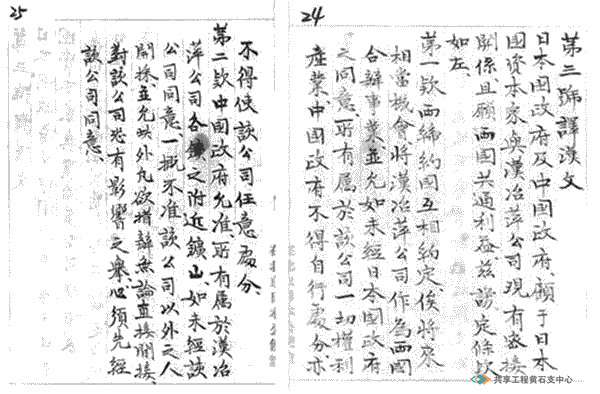 24
第三號譯漢文
日本國政府及中國政府、願于日本
國資本家與漢冶萍公司現有密接
關係且願兩國共通利益、茲議定條款
如左、
第一款 兩締約國互相約定、俟將來
相當機會將漢冶萍公司作為兩國
合辦事業、並允如未經日本國政府
之同意、所有屬於該公司一切權利
產業、中國政府不得自行處分、亦
25
不得使該公司任意處分、
第二款 中國政府允准、所有屬於漢冶
萍公司各鑛之附近鑛山、如未經該
公司同意、一概不准該公司以外之人
開採、並允此外凡欲措辦無論直接間接
對該公司恐有影響之舉、必須先經
該公司同意、
共享工程黄石支中心